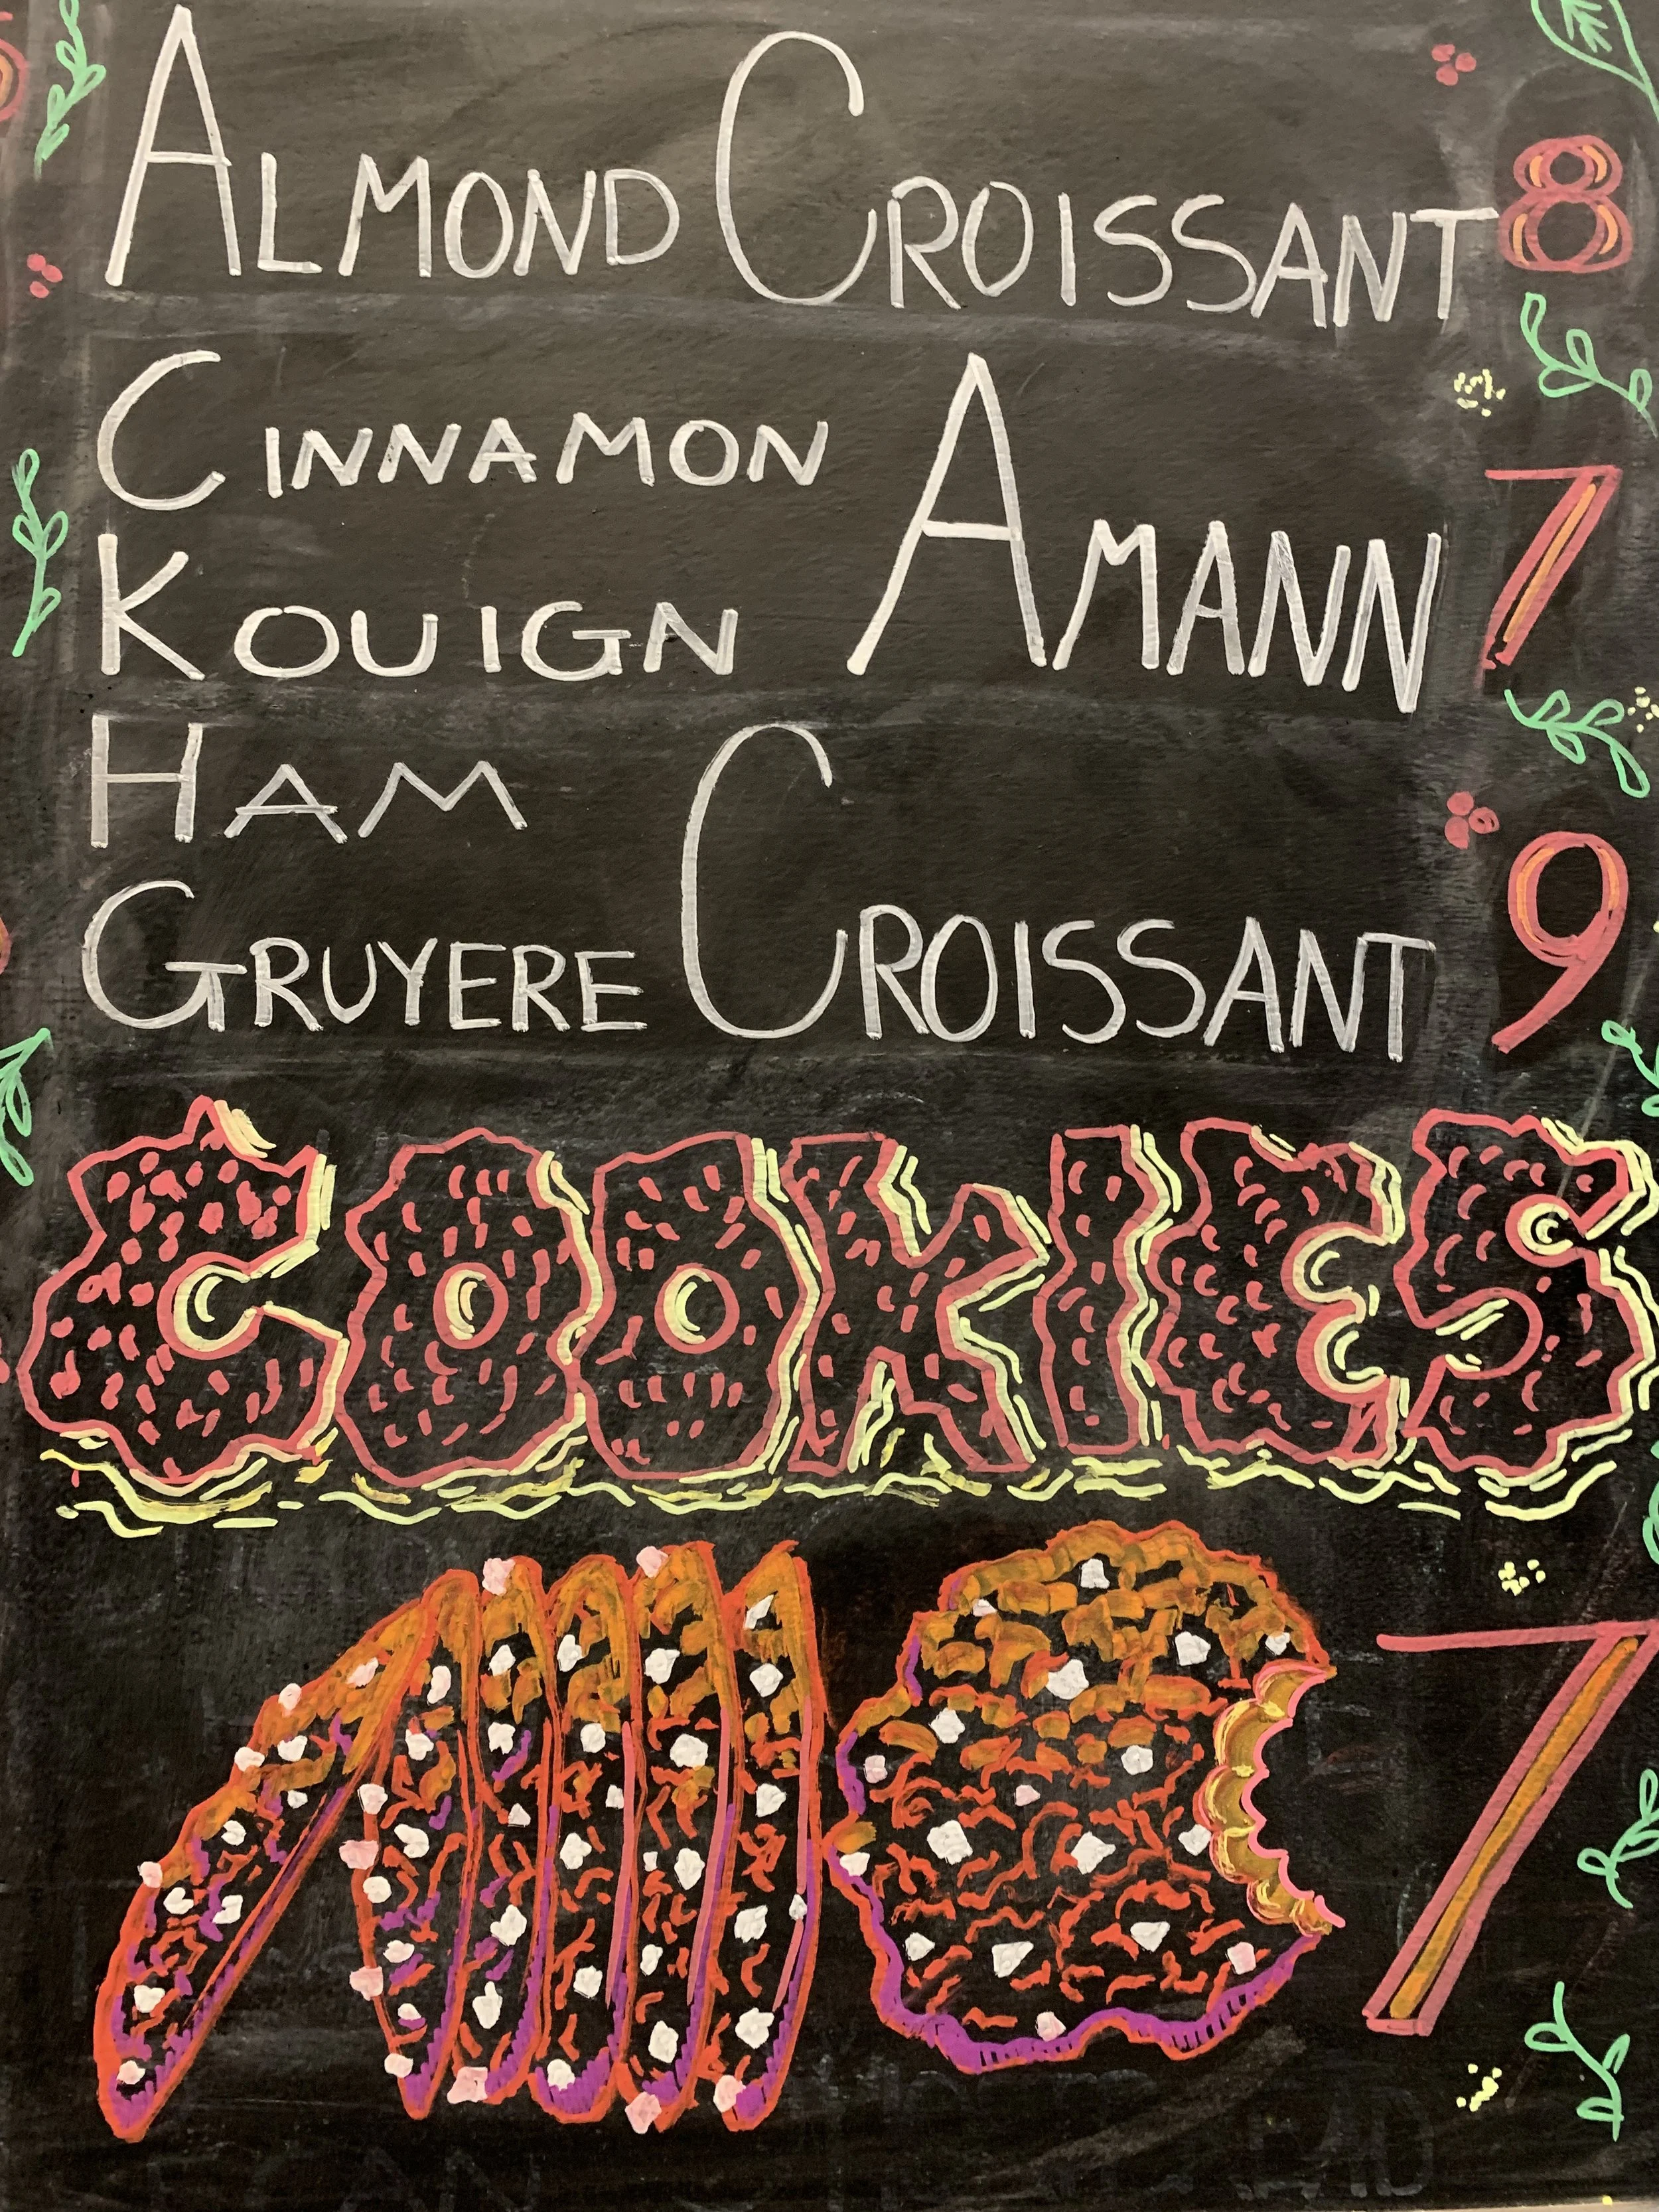 ALMOND CROISSANT 8
CINNAMON
KOUIGN AMANN 7
HAM
GRUYERE CROISSANT 9
COOKIES
7